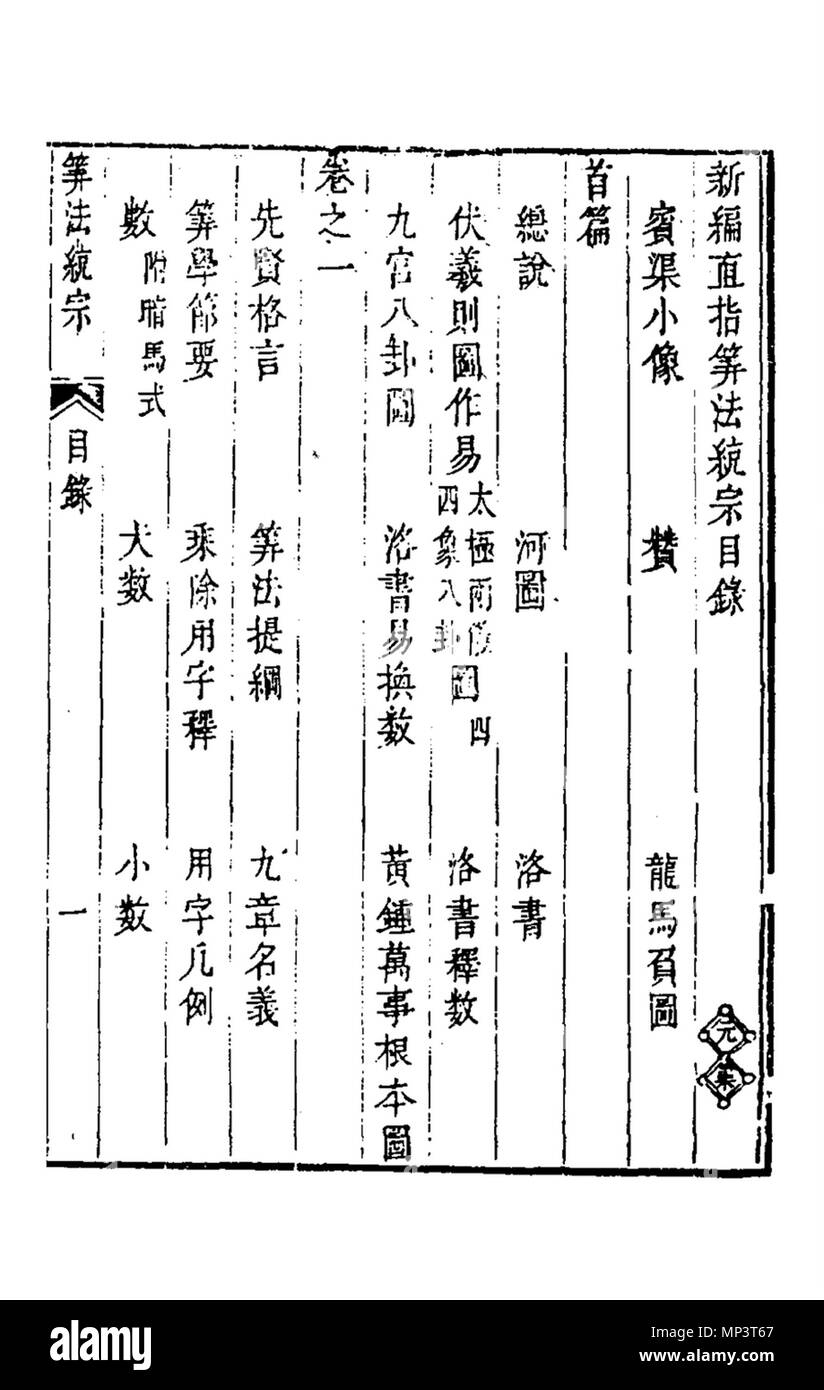 新編直指筭法統宗目錄 元集
賓渠小像 贊 龍馬負圖
首篇
總說 河圖 洛書
伏羲則圖作易 太極兩儀四象八卦圖 四 洛書釋数
九宮八卦圖 洛書易換数 黃鍾萬事根本圖
卷之一
先賢格言 筭法提綱 九章名義
筭學節要 乘除用字釋 用字凡例
數 附暗馬式 大数 小数
筭法統宗 目錄 一
alamy
Image ID: MP3T67
www.alamy.com